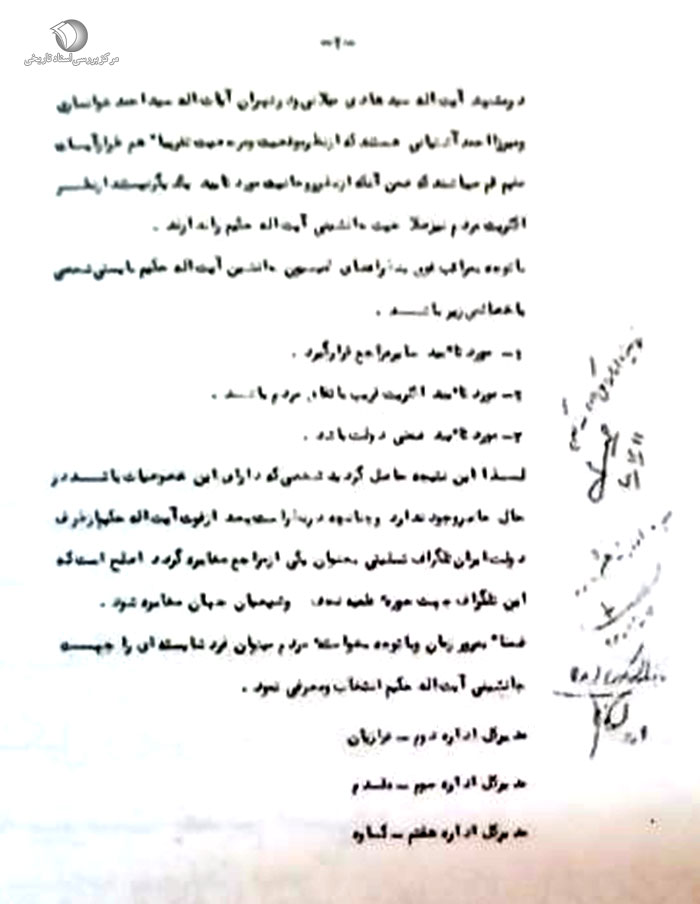 مرکز بررسی اسناد تاریخی
-۲-
در مشهد آیت اله سید هادی میلانی و در تهران آیات اله سید احمد خوانساری
و میرزا احمد آشتیانی هستند که از نظر موقعیت و مرجعیت تقریبا" هم طراز آیات
مقیم قم میباشند که ضمن آنکه از نظر روحانیت مورد تایید یک دیگر نیستند از نظر
اکثریت مردم نیز صلاحیت جانشینی آیت اله حکیم را ندارند .
با توجه بمراتب فوق بنظر اعضای کمیسیون جانشین آیت اله حکیم بایستی شخصی
با خصائص زیر باشد .
۱- مورد تائید سایر مراجع قرار گیرد .
۲- مورد تائید اکثریت قریب باتفاق مردم باشد .
۳- مورد تائید ضمنی دولت باشد .
لذا این نتیجه حاصل گردید شخصی که دارای این خصوصیات باشد در
حال حاضر وجود ندارد و چنانچه در نظر است بعد از فوت آیت اله حکیم از طرف
دولت ایران تلگراف تسلیتی بعنوان یکی از مراجع مخابره گردد اصلح است که
این تلگراف جهت حوزه علمیه نجف و شیعیان جهان مخابره شود .
ضمنا" بمرور زمان و با توجه بخواسته مردم میتوان فرد شایسته ای را جهت
جانشینی آیت اله حکیم انتخاب و معرفی نمود .
مدیرکل اداره دوم - فرازیان
مدیرکل اداره سوم - مقدم
مدیرکل اداره هفتم - کاوه